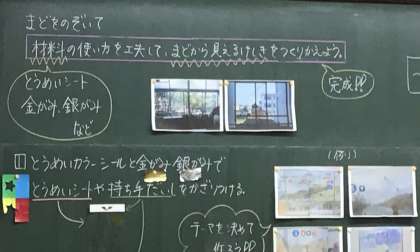 まどをのぞいて
材料の使い方を工夫して、まどから見えるけしきをつくりかえよう。
とうめいシート
金がみ、銀がみ
など
完成!!
① とうめいカラーシールと金がみ・銀がみで
とうめいシートや持ち手だいしをかざりつける。
(例)
テーマを決めて
作ろう!!